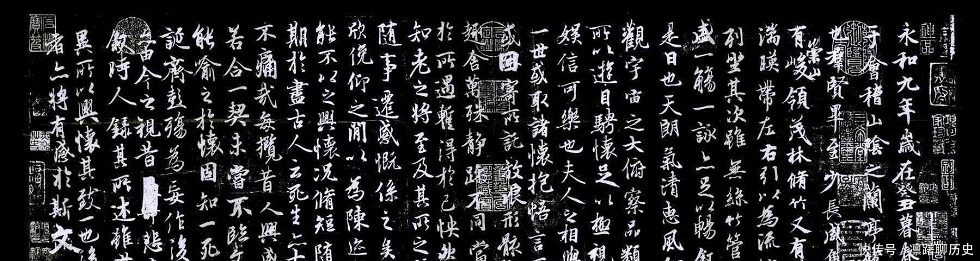 永和九年歲在癸丑暮
于會稽山陰之蘭亭
也羣賢畢至少長咸
崇山
有峻領茂林脩竹又有
湍暎帶左右引以為流
列坐其次雖無絲竹管
盛一觴一詠亦足以暢
是日也天朗氣清惠風
觀宇宙之大俯察品類
所以遊目騁懷足以極視
娛信可樂也夫人之相與
一世或取諸懷抱悟言
或因寄所託放浪形骸
趣舍萬殊靜躁不同當
於所遇暫得於己怏然
知老之將至及其所之
隨事遷感慨係之矣
欣俛仰之閒以為陳迹
能不以之興懷況脩短隨
期於盡古人云死生亦大
不痛哉每攬昔人興感
若合一契未嘗不臨文
能喻之於懷固知一死
誕齊彭殤為妄作後
由今之視昔悲
敘時人錄其所述雖世
異所以興懷其致一也後
者亦將有感於斯文
快传号/聊历史